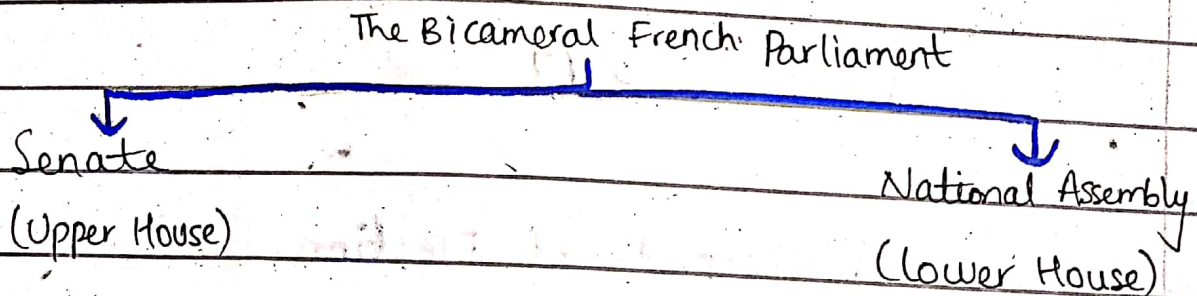 The Bicameral French Parliament
Senate
(Upper House)
National Assembly
(lower House)